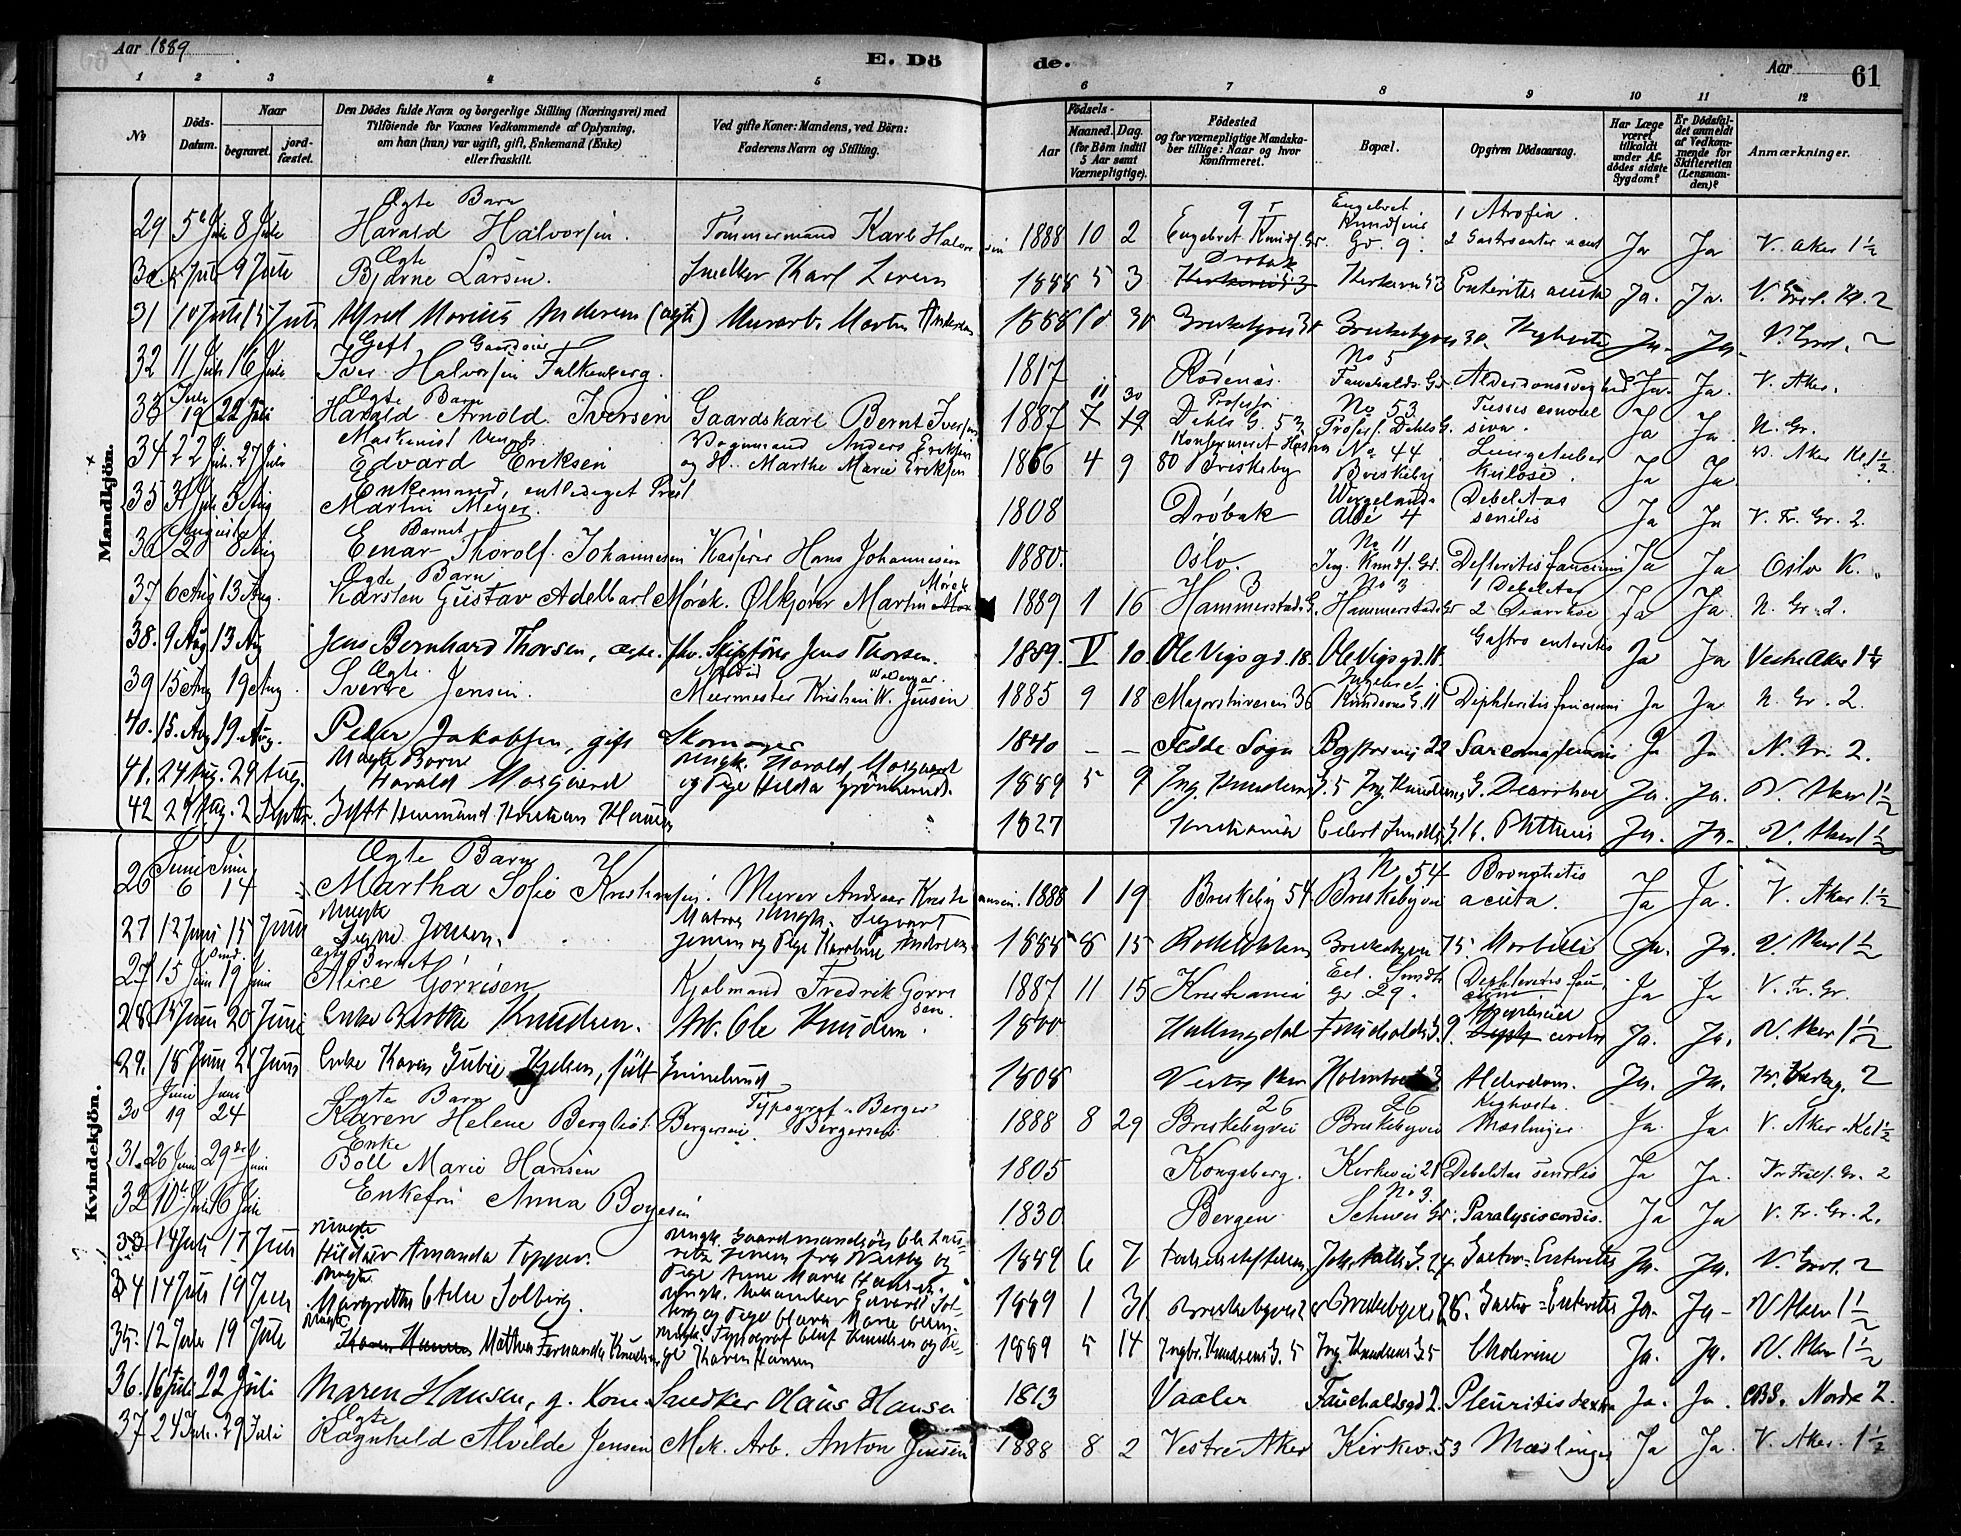 Aar 1889
E. Döde.
Aar
61
1 2 3 4 5 6 7 8 9 10 11 12
No
Döds-Datum.
Naar
begravet.
jordfæstet.
Den Dödes fulde Navn og borgerlige Stilling (Næringsvei) med Tilföiende for Voxnes Vedkommende af Oplysning, om han (hun) var ugift, gift, Enkemand (Enke) eller fraskilt.
Ved gifte Koner: Mandens, ved Börn: Faderens Navn og Stilling.
Födsels-
Aar
Maaned. Dag.
(for Börn indtil 5 Aar samt Værnepligtige).
Födested og for værnepligtige Mandskaber tillige: Naar og hvor konfirmeret.
Bopæl.
Opgiven Dödsaarsag.
Har Læge været tilkaldt under Afdödes sidste Sygdom?
Er Dödsfaldet anmeldt af Vedkommende for Skifteretten (Lensmanden)?
Anmærkninger.
Mandkjön.
29 5 Juli 8 Juli Ægte Barn Harald Halvorsen. Tömmermand Karl Halvorsen 1888 10 2 Engebret Knuds. Gd. 9 Engebret Knudsens Gd. 9. 1 Atrofia. 2 Gastroenter. acut Ja Ja V. Aker 1 1/2
30. Juli 9 Juli Ægte Bjarne Larsen. Snedker Karl Larsen 1888 5 3 Dröbak Kirkevei 53 Enteritis acuta Ja. Ja. V. Grl. Kl. 2
31 10 Juli 15 Juli Alfred Marius Andersen (ægte) Murarb. Martin Andersen 1888 10 30 Briskebyvei 30 Briskebyvei 30. Kighoste Ja. Ja. V. Grl. 2
32 11 Juli 16 Juli Gift Gaardeier Iver Halvorsen Falkenberg. 1817 Rödenæs. No 5 Fauchalds Gd. Alderdomssvaghed Ja. Ja. V. Aker.
33 Juli 19 22 Juli Ægte Barn Harald Arnold Iversen Gaardskarl Bernt Iversen 1887 11 30 Professor Dahls G. 53 No 53 Profess. Dahls G. Tussis convulsiva. Ja Ja N. Gr.
34 22 Juli. 27 Juli Maskinist Ungk. Edvard Eriksen Vognmand Anders Eriksen og H. Marthe Marie Eriksen 1866 4 9 Konfirmeret 80 Briskeby No 44 Briskeby Lungetuberkulose. Ja Ja V. Aker Kl. 1 1/2
35 31 Juli 5 Aug Enkemand, entlediget Præst Martin Meyer. 1808 Dröbak Wergelands Allé 4 Debilitas senilis Ja Ja V. Fr. Gr. 2.
36 August 2 8 Aug Barnet Einar Thorolf Johannesen Kasserer Hans Johannesen 1880. Oslo. No 11 Ing. Knuds. Gd. Difteritis faucium Ja Ja Oslo K.
37 6 Aug 13 Aug. Ægte Barn Karsten Gustav Adelbart Mörck. Ölkjörer Martin Mörck 1889 1 16 Hammerstads G. 3 No 3 Hammerstads Gd 1 Debilitas 2 Diarrhoe Ja Ja. N. Gr. 2.
38. 9 Aug 13 Aug Jens Bernhard Thorsen, ægte. fhv. Skipsförer Jens Thorsen. 1889. V 10. Ole Vigs gd. 18. Ole Vigs gd. 18. Gastro enteritis Ja Ja Vestre Aker 1 1/4
39 15 Aug 19 Aug. Ægte Sverre Jensen. Murmester Kristian W. Jensen Waldemar 1885 9 18 Majorstuveien 36 Ingebret Knudsens G. 11 Diphteritis faucium Ja Ja. N. Gr. 2.
40. 15. Aug 19. Aug. Peder Jakobsen, gift Skomager 1840 – – Fedde Sogn Bygdövei 22 Sarcoma femoris Ja Ja N. Gr. 2.
41. 24 Aug. 29 Aug. Uægte Barn Harald Mosgaard Ungk. Harald Mosgaard og Pige Hilda Grönlund. 1889 5 9 Ing. Knudsens G. 5 Ing. Knudsens G. Diarrhoe Ja. Ja. V. Aker 1 1/2
42 2 Septbr. Gift Hermand Kristian Hansen 1827 Kristiania Eilert Sundts G. 16. Phthisis Ja. Ja. V. Aker 1 1/2
Kvindekjön.
26 Juni 6 Juni 14 Ægte Barn Martha Sofie Kristiansen. Murer Andreas Kristiansen. 1888 1 19 Briskeby 54 No 54 Briskebyvei Bronchitis acuta. Ja Ja. V. Aker 1 1/2
27 12 Juni 15 Juni Uægte Signe Jensen. Matros Ungk. Sigvart Jensen og Pige Karoline Andersen 1888 8 15 Rodelökken Briskebyvei 75. Morbilli Ja. Ja. V. Aker 1 1/2
27 15 Juni 19 Juni Ægte Barnet Alice Görrisen Kjöbmand Fredrik Görrisen 1887 11 15 Kristiania Eil. Sundts Gd. 29. Diphteritis faucium. Ja Ja V. Fr. Gr.
28. 15 Juni 20 Juni Enke Berthe Knudsen. Arb. Ole Knudsen. 1800 Hallingdal Fauchalds G. 9. Apoplexia cerebri Ja. Ja. V. Aker 1 1/2
29. 18 Juni 21 Juni Enke Karen Gubie Nielsen, född 1808 Vestre Aker Alderdom. Ja. Ja. 2
30 Juni 19 Juni 24 Ægte Barn Karen Helene Bergliot Bergersen. Typograf Berger Bergersen 1888 8 29 Briskebyvei 26 Briskebyvei 26 Kighoste Mæslinger Ja. Ja. V. Aker Kl 1 1/2
31. 26 Juni 29de Juni Enke Boll Marie Hansen 1805 Kongsberg. Kirkevei 21 Debilitas senilis Ja Ja. Vor Frels. Gr. 2
32 10 Juli 16 Juli Enkefru Anna Boyesen 1830 Bergen No 3. Schwei Gd. Paralysis cordis. Ja Ja V. Fr. Gr. 2.
33 14 Juli 17 Juli Uægte Hildur Amanda 1889 6 7 Födselsstiftelsen Gastro-Enteritis Ja. Ja. V. Grl. 2
34 14 Juli 19 Juli Uægte Margrethe Solberg. 1889 1 31 Briskebyvei Briskebyvei 26. Gastro-Enteritis Ja. Ja – V Aker 1 1/2
35. 12 Juli 19 Juli Uægte Karen Hansen Mathea Fernanda Knudsen Ungk. Typograf Oluf Knudsen og Pige Karen Hansen 1889 5 14 Ingbr. Knudsens G. 5 Ing. Knudsens G 5 Cholerine Ja. Ja. V. Aker 1 1/2
36. 16 Juli 22 Juli Maren Hansen, g. Kone Snedker Claus Hansen 1813 Vaaler Fauchaldsgd 2. Pleuritis dextra Ja. Ja. Nordre 2.
37 24 Juli. 29 Juli Ægte Ragnhild Alvilde Jensen Mek. Arb. Anton Jensen 1888 8 2 Vestre Aker Kirkev. 53 Mæslinger Ja Ja. V. Aker. 1 1/2